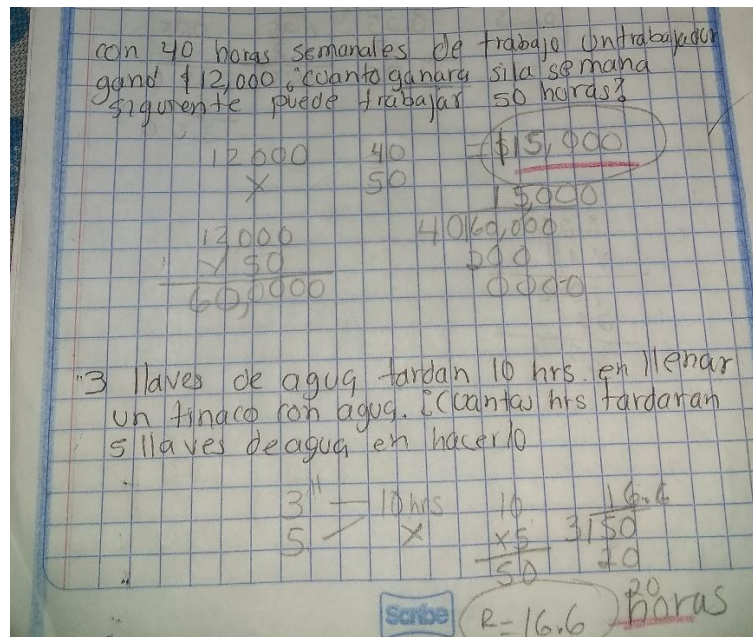 con 40 horas semanales de trabajo un trabajador
ganó $12,000 ¿cuanto ganara si la semana
siguiente puede trabajar 50 horas?
12000 40 = $15,000
X 50
15,000
12000 40 60,000
X 50 200
60,0000 0000
3 llaves de agua tardan 10 hrs. en llenar
un tinaco con agua. ¿Cuantas hrs tardaran
5 llaves de agua en hacerlo
3 — 10 hrs 10 16.6
5 — X x5 3 150
50 20
20
Scribe R=16.6 horas